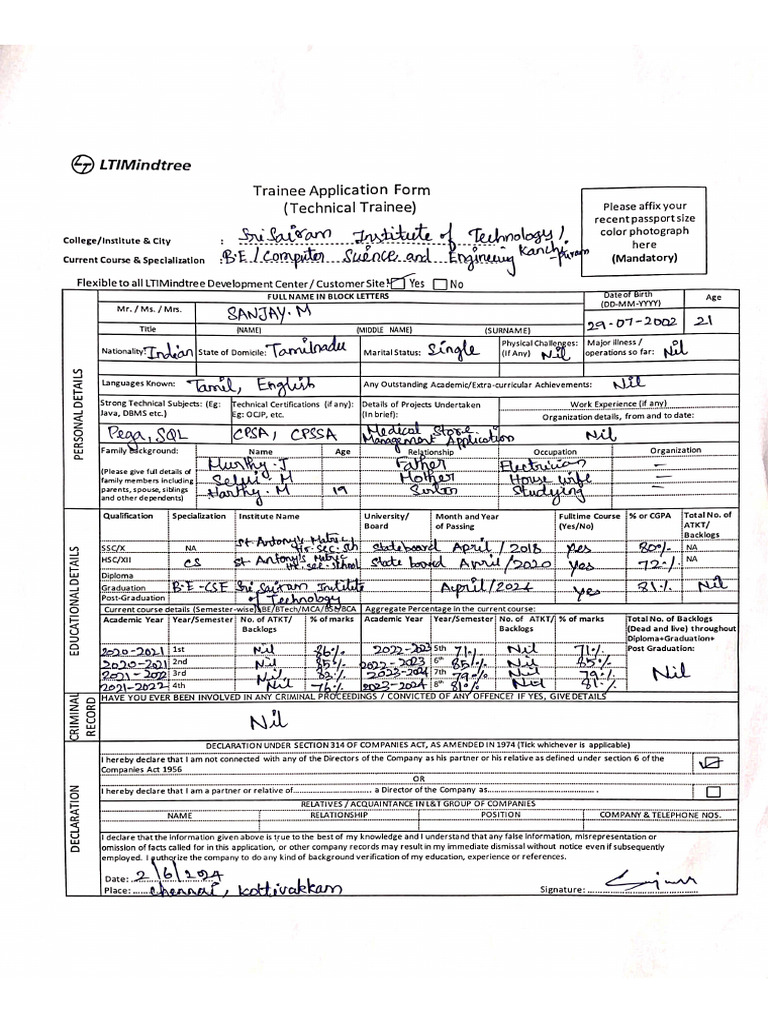 LTIMindtree
Trainee Application Form
(Technical Trainee)
Please affix your
recent passport size
color photograph
here
(Mandatory)
College/Institute & City : Sri Sairam Institute of Technology /
Kanchipuram
Current Course & Specialization : B.E / Computer Science and Engineering
Flexible to all LTIMindtree Development Center / Customer Site? Yes No
PERSONAL DETAILS
FULL NAME IN BLOCK LETTERS Date of Birth Age
(DD-MM-YYYY)
Mr. / Ms. / Mrs. SANJAY. M 29-07-2002 21
Title (NAME) (MIDDLE NAME) (SURNAME)
Nationality: Indian State of Domicile: Tamilnadu Marital Status: Single Physical Challenges: (If Any) Nil Major illness / operations so far: Nil
Languages Known: Tamil, English Any Outstanding Academic/Extra-curricular Achievements: Nil
Strong Technical Subjects: (Eg: Technical Certifications (if any): Details of Projects Undertaken Work Experience (if any)
Java, DBMS etc.) Eg: OCJP, etc. (In brief): Organization details, from and to date:
Pega, SQL CPSA, CPSSA Medical Store Management Application Nil
Family Background: Name Age Relationship Occupation Organization
(Please give full details of family members including parents, spouse, siblings and other dependents)
Murthy. J Father Electrician –
Selvi. M Mother House wife –
Harthy. M 19 Studying –
EDUCATIONAL DETAILS
Qualification Specialization Institute Name University/ Board Month and Year of Passing Fulltime Course (Yes/No) % or CGPA Total No. of ATKT/ Backlogs
SSC/X NA St Antony's Matric Hr. Sec. Sch State board April / 2018 yes 80% NA
HSC/XII CS St Antony's Matric Hr. sec. school State board April / 2020 yes 72% NA
Diploma
Graduation B.E-CSE Sri Sairam Institute of Technology April / 2024 yes 81% Nil
Post-Graduation
Current course details (Semester-wise) BE/BTech/MCA/BSc/BCA Aggregate Percentage in the current course:
Academic Year Year/Semester No. of ATKT/ Backlogs % of marks Academic Year Year/Semester No. of ATKT/ Backlogs % of marks Total No. of Backlogs (Dead and live) throughout Diploma+Graduation+ Post Graduation:
2020-2021 1st Nil 86% 2022-2023 5th 71% Nil 71%
2020-2021 2nd Nil 85% 2022-2023 6th 85% Nil 85% Nil
2021-2022 3rd Nil 83% 2023-2024 7th 79% Nil 79%
2021-2022 4th Nil 76% 2023-2024 8th 81% Nil 81%
CRIMINAL RECORD
HAVE YOU EVER BEEN INVOLVED IN ANY CRIMINAL PROCEEDINGS / CONVICTED OF ANY OFFENCE? IF YES, GIVE DETAILS
Nil
DECLARATION
DECLARATION UNDER SECTION 314 OF COMPANIES ACT, AS AMENDED IN 1974 (Tick whichever is applicable)
I hereby declare that I am not connected with any of the Directors of the Company as his partner or his relative as defined under section 6 of the
Companies Act 1956
OR
I hereby declare that I am a partner or relative of........................ a Director of the Company as.................................
RELATIVES / ACQUAINTANCE IN L&T GROUP OF COMPANIES
NAME RELATIONSHIP POSITION COMPANY & TELEPHONE NOS.
I declare that the information given above is true to the best of my knowledge and I understand that any false information, misrepresentation or
omission of facts called for in this application, or other company records may result in my immediate dismissal without notice even if subsequently
employed. I authorize the company to do any kind of background verification of my education, experience or references.
Date: 2/6/2024
Place: Chennai, Kottivakkam Signature: